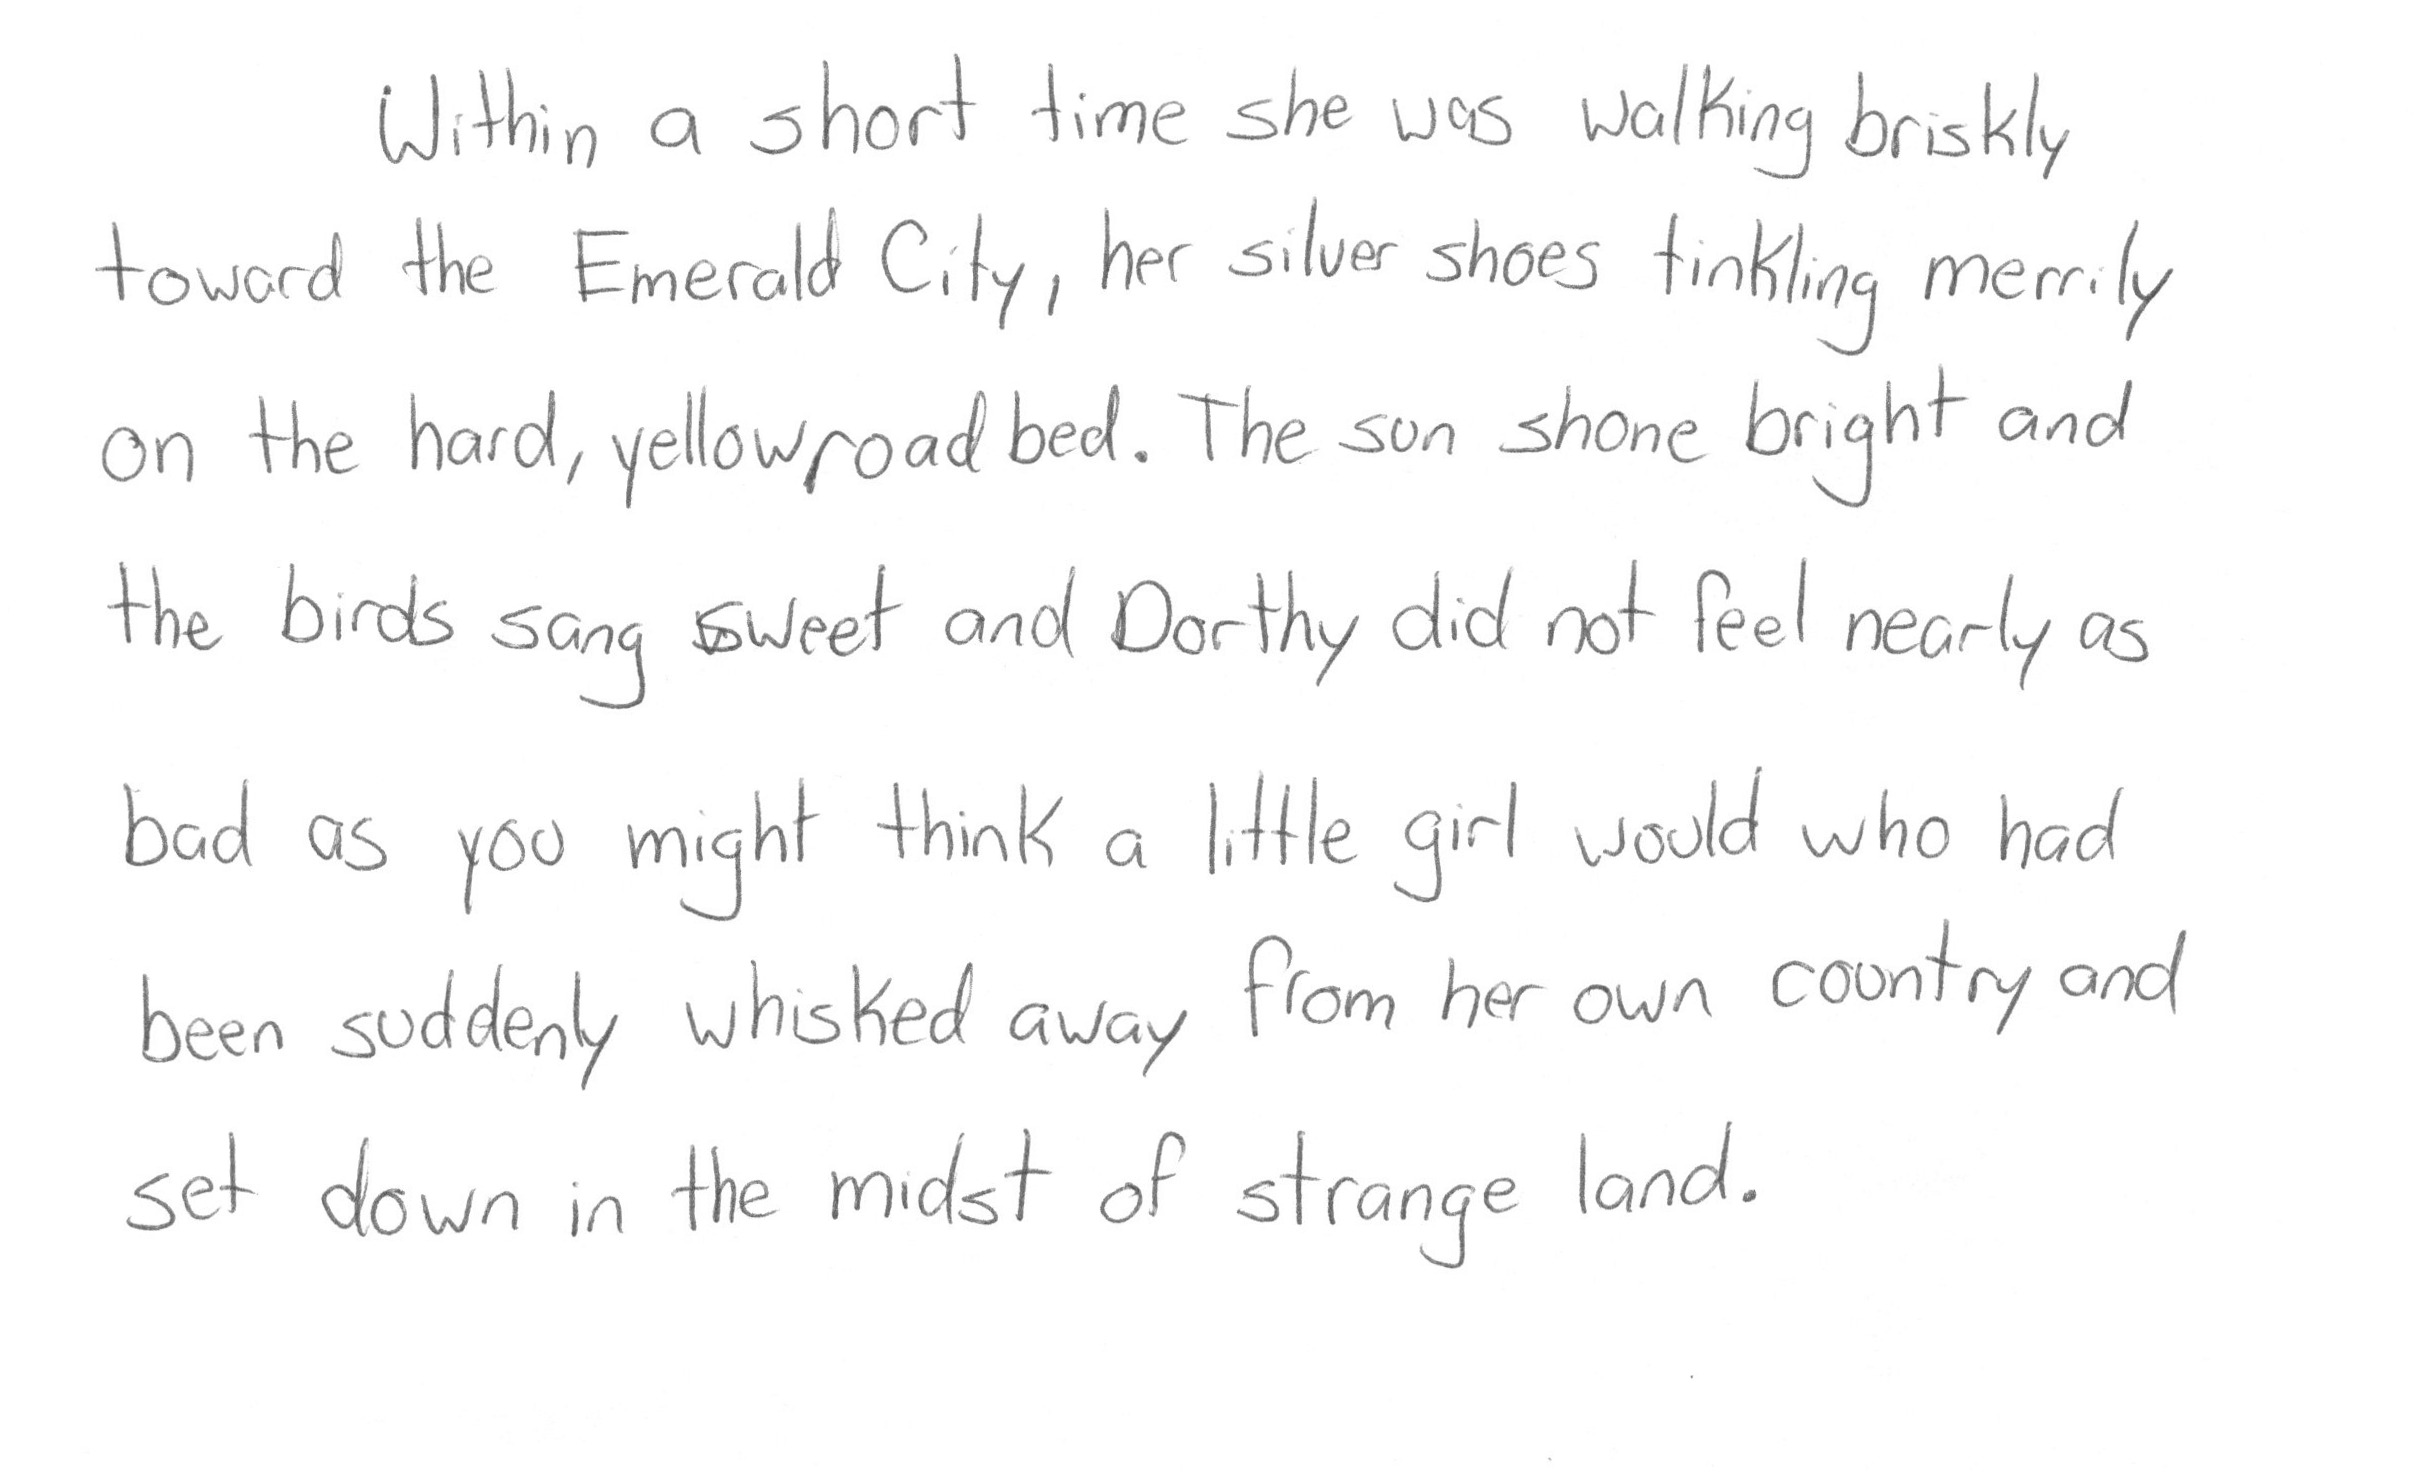 Within a short time she was walking briskly
toward the Emerald City, her silver shoes tinkling merrily
on the hard, yellow roadbed. The sun shone bright and
the birds sang sweet and Dorthy did not feel nearly as
bad as you might think a little girl would who had
been suddenly whisked away from her own country and
set down in the midst of strange land.